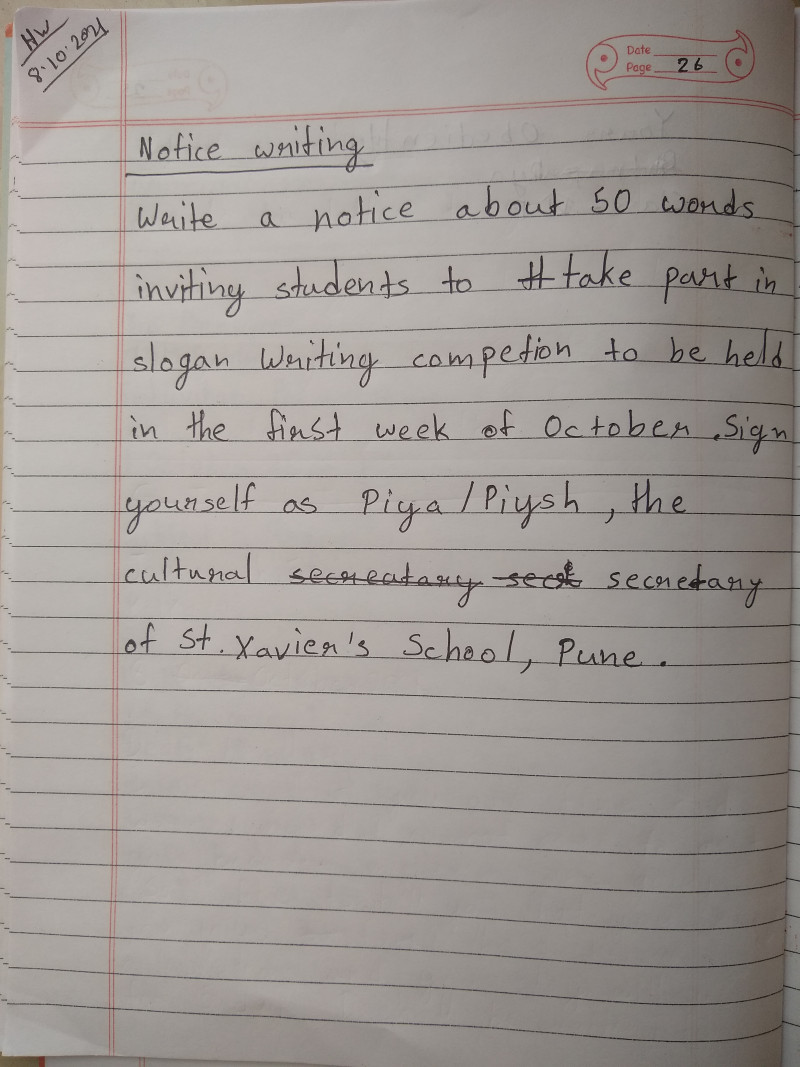 HW
8.10.2021
Date
Page 26
Notice writing
Write a notice about 50 words
inviting students to take part in
slogan Writing competion to be held
in the first week of October. Sign
yourself as Piya / Piysh, the
cultural secreatary secet secretary
of St. Xavier's School, Pune.